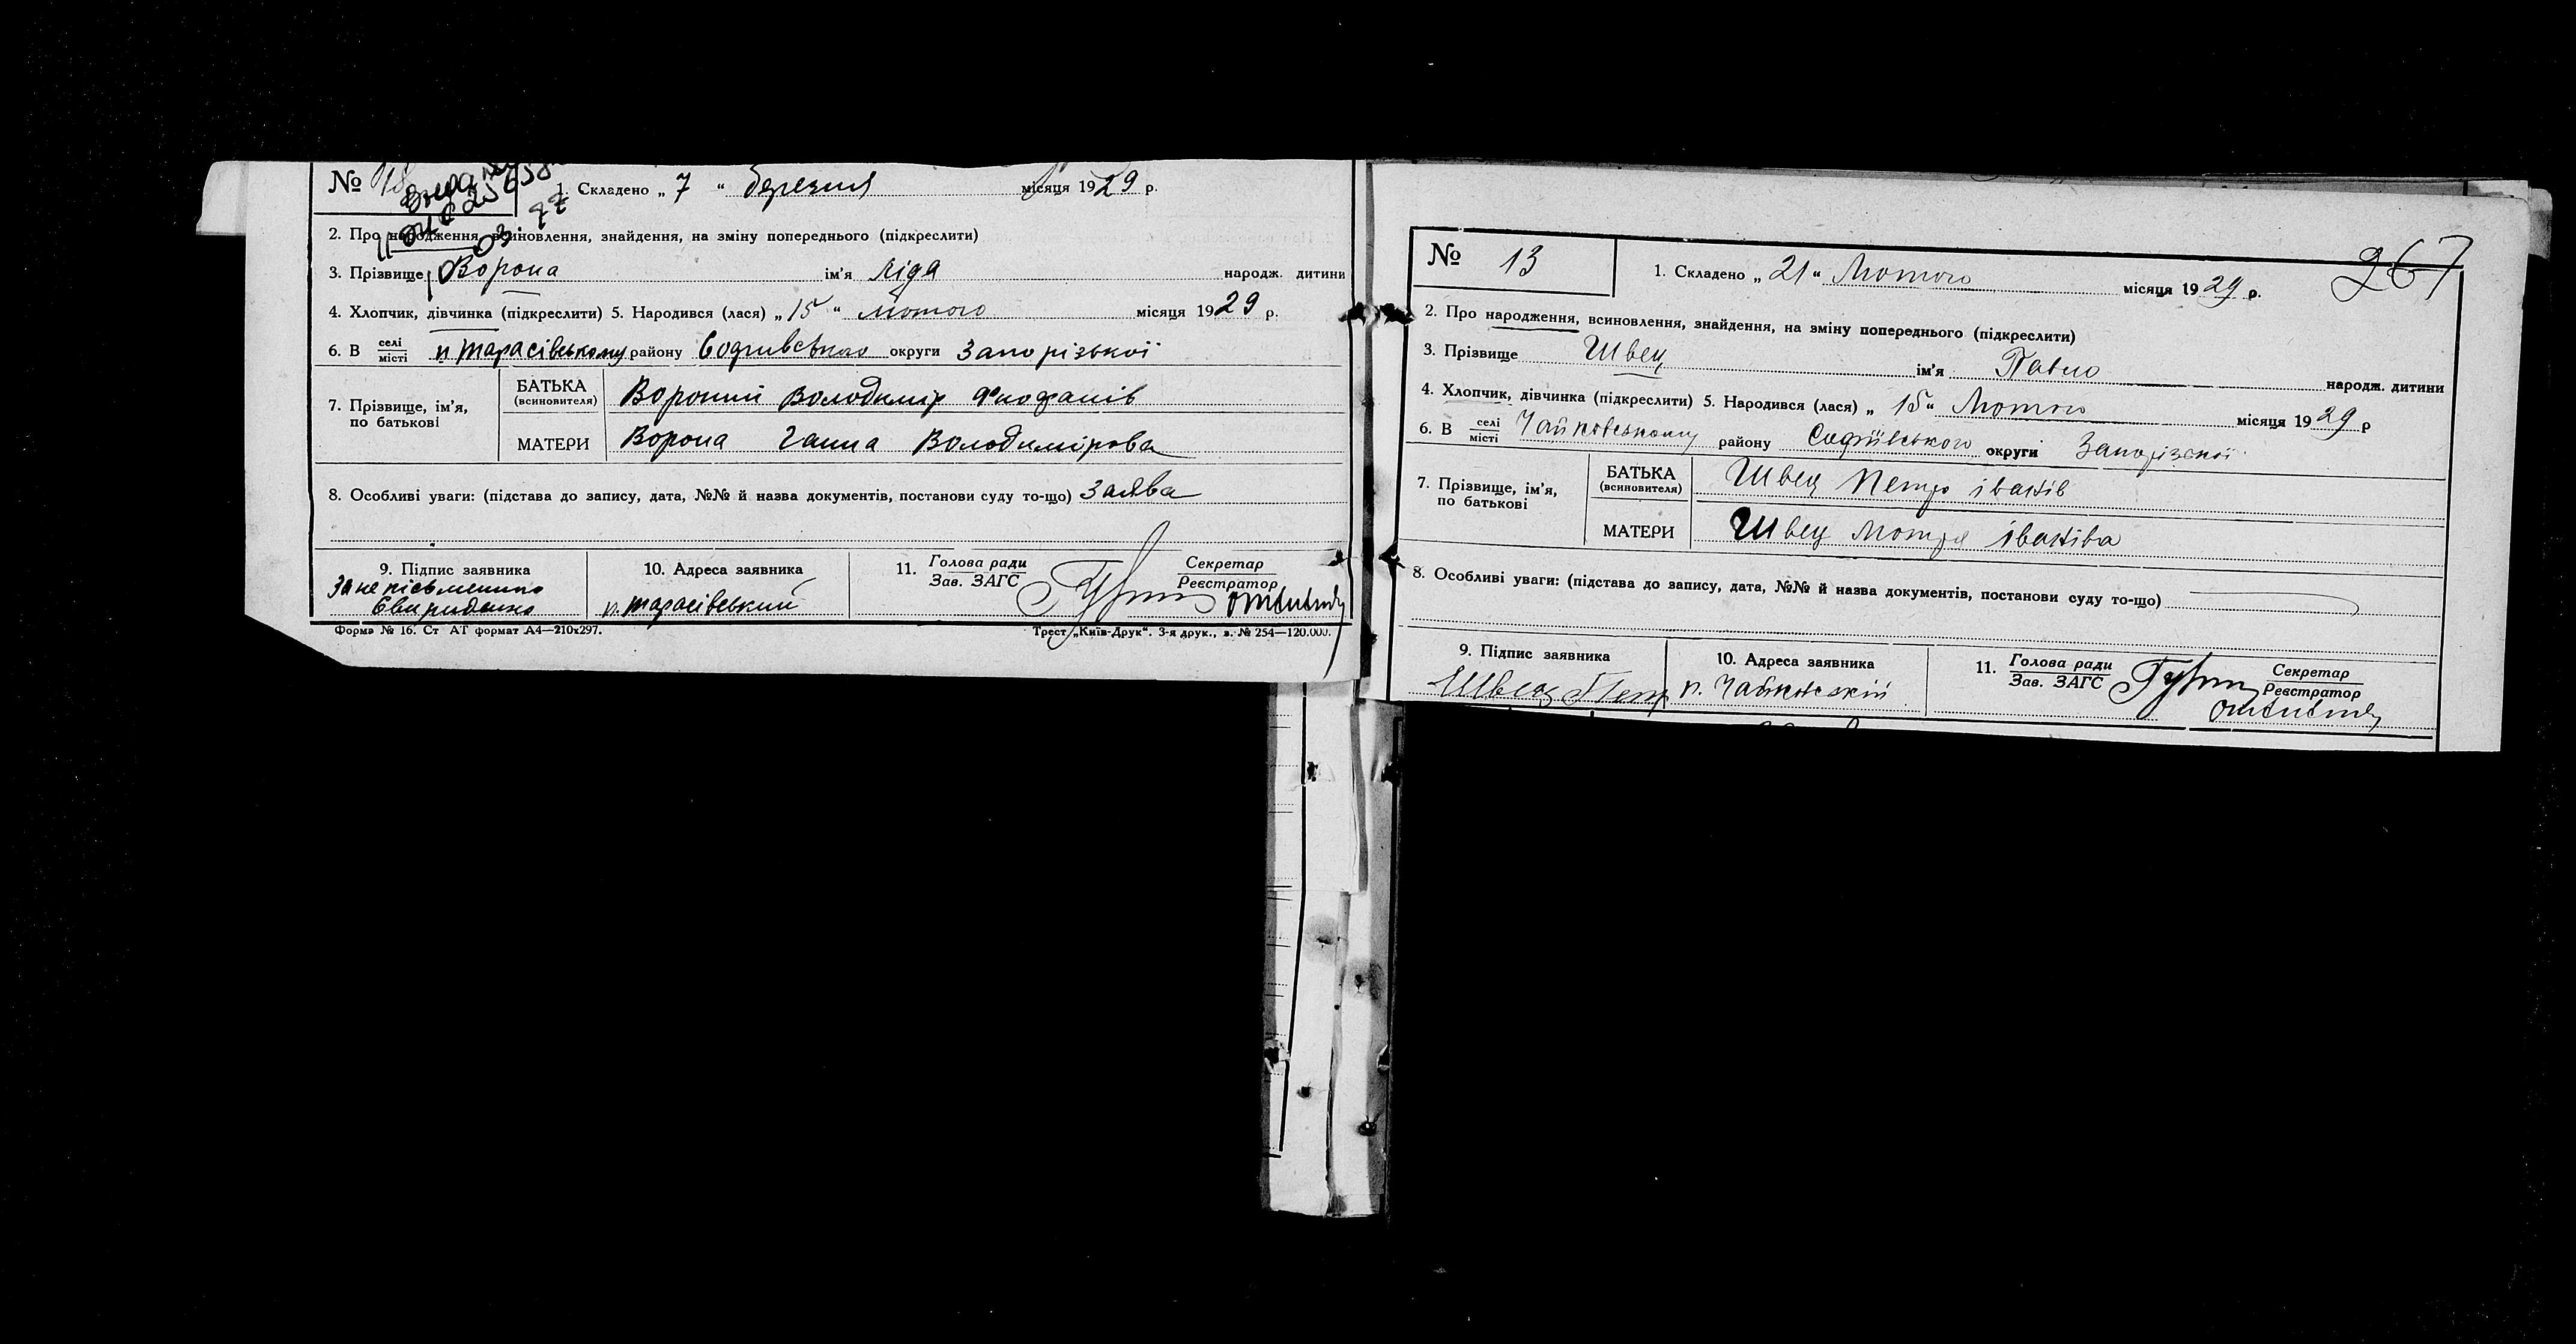 № 18
1. Складено „ 7 “ березня місяця 1929 р.
2. Про народження, всиновлення, знайдення, на зміну попереднього (підкреслити)
3. Прізвище Ворона ім'я Ліда народж. дитини
4. Хлопчик, дівчинка (підкреслити) 5. Народився (лася) „ 15 “ Лютого місяця 1929 р.
6. В селі місті п Тарасівському району Софиивського округи Запорізької
7. Прізвище, ім'я, по батькові
БАТЬКА (всиновителя) Вороний Володимір Феофанів
МАТЕРИ Ворона Ганна Володимірова
8. Особливі уваги: (підстава до запису, дата, №№ й назва документів, постанови суду то-що) Заява
9. Підпис заявника
За не пісьменного
Свириденко
10. Адреса заявника
п. Тарасівський
11. Голова ради
Зав. ЗАГС
Секретар
Реєстратор
Форма № 16. Ст АТ формат А4—210х297.
Трест „Київ-Друк“. 3-я друк., з. № 254—120.000.
267
№ 13
1. Складено „ 21 “ Лютого місяця 1929 р.
2. Про народження, всиновлення, знайдення, на зміну попереднього (підкреслити)
3. Прізвище Швец ім'я Павло народж. дитини
4. Хлопчик, дівчинка (підкреслити) 5. Народився (лася) „ 15 “ Лютого місяця 1929 р
6. В селі місті Чайковському району Софіївського округи Запорізької
7. Прізвище, ім'я, по батькові
БАТЬКА (всиновителя) Швец Петро іванів
МАТЕРИ Швец Мотря іваніва
8. Особливі уваги: (підстава до запису, дата, №№ й назва документів, постанови суду то-що)
9. Підпис заявника
Швец Петр
10. Адреса заявника
п. Чайковскій
11. Голова ради
Зав. ЗАГС
Секретар
Реєстратор